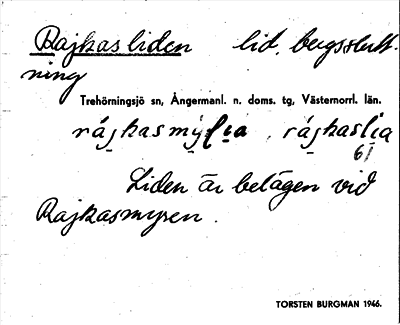 Rajkasliden lid, bergsslutt-
ning
Trehörningsjö sn, Ångermanl. n. doms. tg, Västernorrl. län.
rájkasmỳlıa, rájkaslia
61
Liden är belägen vid
Rajkasmyren.
TORSTEN BURGMAN 1946.